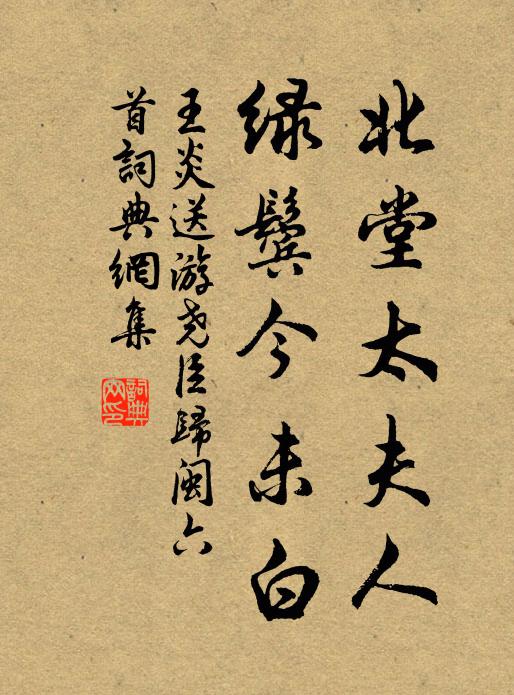 北堂太夫人
绿鬓今未白
王炎送游尧臣歸闽六
首詞典網集
詞典
网印